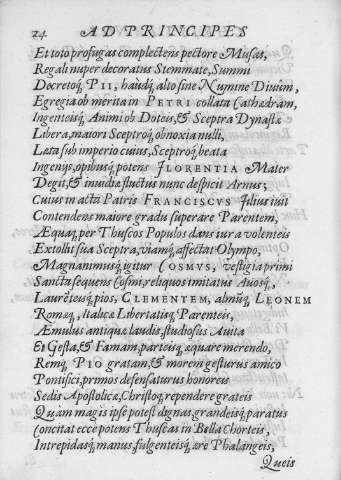 24. AD PRINCIPES
Et toto profugas complectens pectore Musas,
Regali nuper decoratus Stemmate, Summi
Decretoq́; PII, haùdq́; alto sine Numine Diuûm,
Egregia ob merita in PETRI collata Cathedram,
Ingenteisq́; Animi ob Doteis, & Sceptra Dynastæ
Libera, maiori Sceptroq́; obnoxia nulli,
Læta sub imperio cuius, Sceptroq́; beata
Ingenijs, opibusq́; potens FLORENTIA Mater
Degit, & inuidiæ fluctus nunc despicit Arnus;
Cuius in acta Patris FRANCISCVS Filius iuit
Contendens maiore gradu superare Parentem,
Æquaq́; per Thuscos Populos dans iura volenteis
Extollit sua Sceptra, viamq́; affectat Olympo,
Magnanimusq́; igitur COSMVS, vestigia primi
Sancta sequens Cosmi, reliquos imitatus Auosq́;,
Laurēteisq́; pios, CLEMENTEM, almūq́; LEONEM
Romæq́;, Italicæ Libertatisq́; Parenteis,
Æmulus antiquæ laudis, studiosus Auita
Et Gesta, & Famam, parteisq́; æquare merendo,
Remq́; PIO gratam, & morem gesturus amico
Pontifici, primos defensaturus honoreis
Sedis Apostolicæ, Christoq́; rependere grateis
Quàm magis ipse potest dignas, grandeisq́; paratus
Concitat ecce potens Thuscas in Bella Chorteis,
Intrepidasq́; manus, fulgenteisq́; ære Phalangeis,
Queis